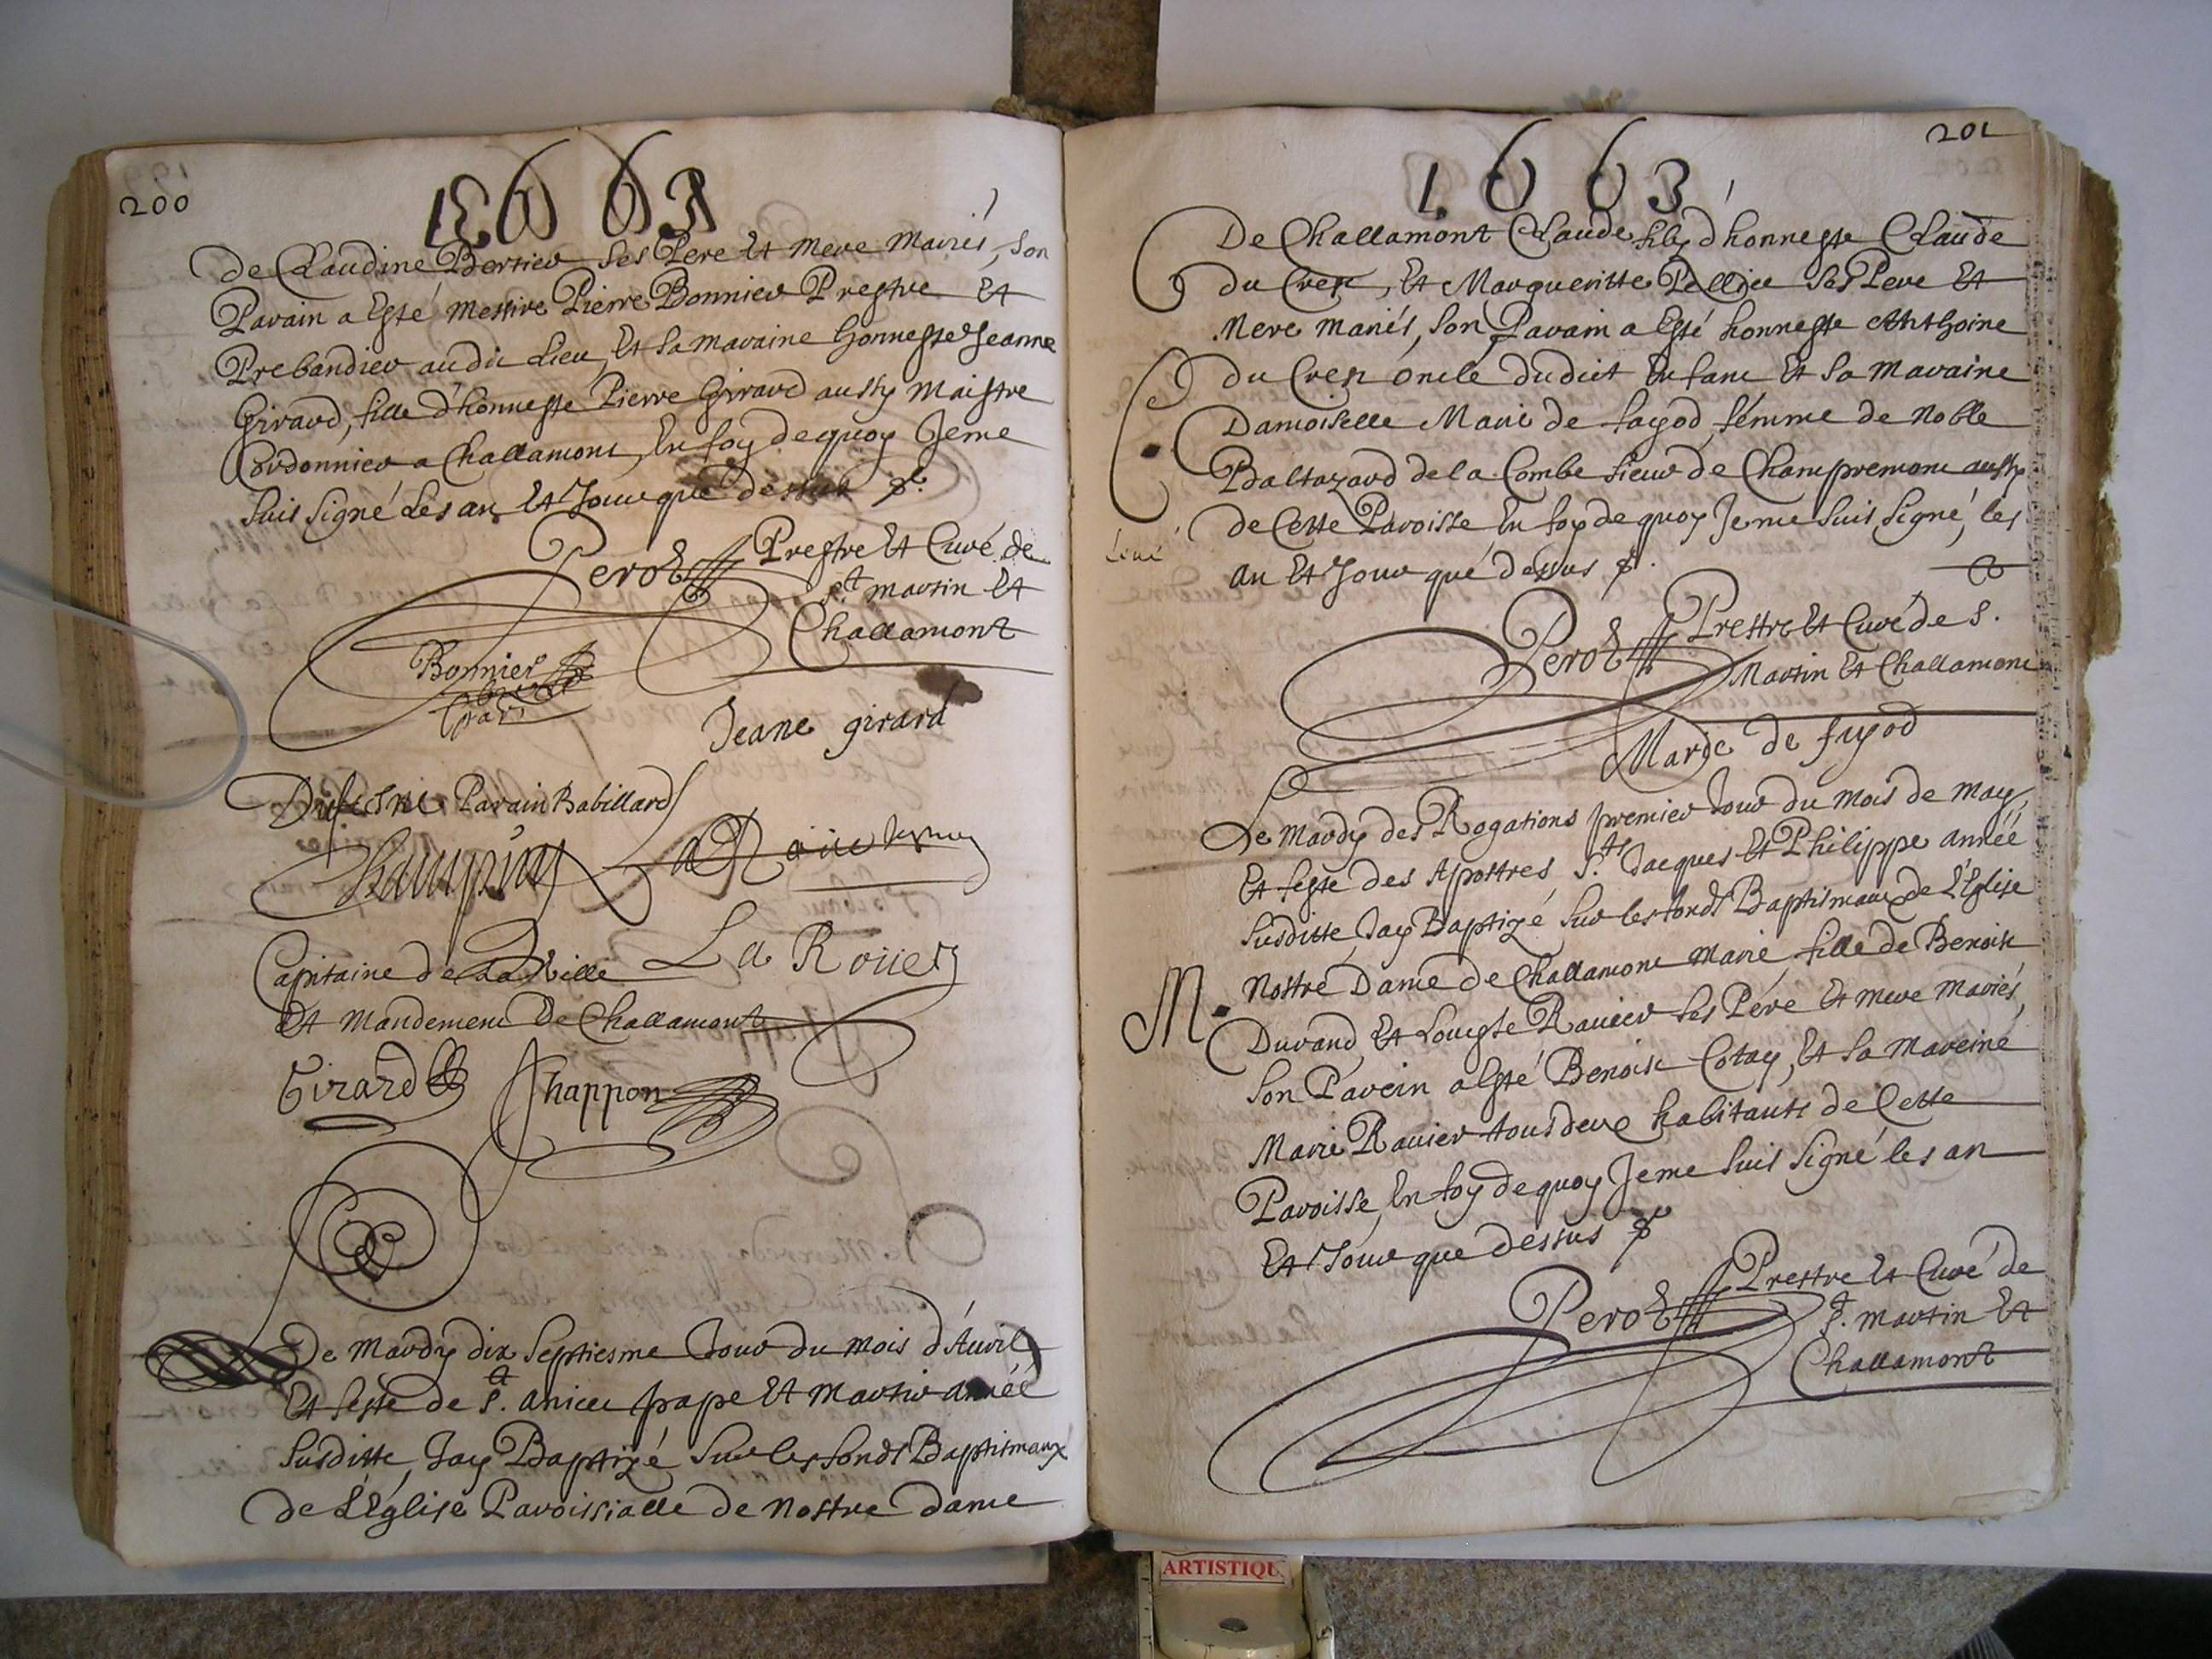 200
1663
de Claudine Bertier ses Pere Et mere Mariés, son
Parain a Esté messire Pierre Bonnier Prestre Et
Prebandier audit Lieu, Et sa maraine honneste Jeanne
Girard, fille d'honneste Pierre Girard aussy Maistre
Cordonnier a Challamont, En foy de quoy Je me
suis signé Les an Et Jour que dessus
Perot Prestre Et Curé de
St martin Et
Challamont
Bonnier
Jeane girard
Parain Babillard
Capitaine de La Ville
La Roüer
Et Mandement De Challamont
Girard Chappon
Le Mardy dix septiesme Jour du mois d'Auril
Et feste de St. anicet pape Et Martir année
susditte, Jay Baptizé sur les fonds Baptismaux
de L'Eglise Paroissialle de Nostre dame
201
1663
De Challamont Claude fils d'honneste Claude
du Crest, Et Margueritte ses Pere Et
Mere mariés, son Parain a Esté honneste Anthoine
du Crest oncle dudict Enfant Et sa maraine
Damoiselle Marie de fayod, femme de Noble
Baltazard de la Combe sieur de Champremont aussy
de Cette Paroisse, En foy de quoy Je me suis signé, les
an Et Jour que dessus
Perot Prestre Et Curé de S.
Martin Et Challamont
Marie de fayod
Le Mardy des Rogations premier Jour du mois de may,
Et feste des Apostres Sts Jacques Et Philippe année
susditte, Jay Baptizé sur les fonds Baptismaux de L'Eglise
M. Nostre Dame de Challamont Marie fille de Benoist
Durand, Et Louyse Rauier ses Pere Et mere Mariés,
son Parein a Esté Benoist Cotay, Et sa Mareine
Marie Rauier tous deux habitants de Cette
Paroisse, En foy de quoy Je me suis signé les an
Et Jour que dessus
Perot Prestre Et Curé de
St. martin Et
Challamont
ARTISTIQU